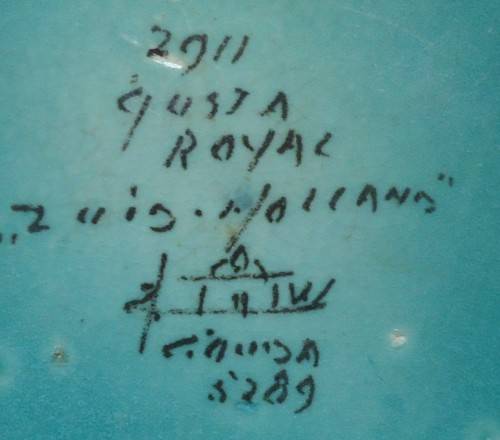 2911
GUSTA
ROYAL
„ZUID-HOLLAND”
GOUDA
5289